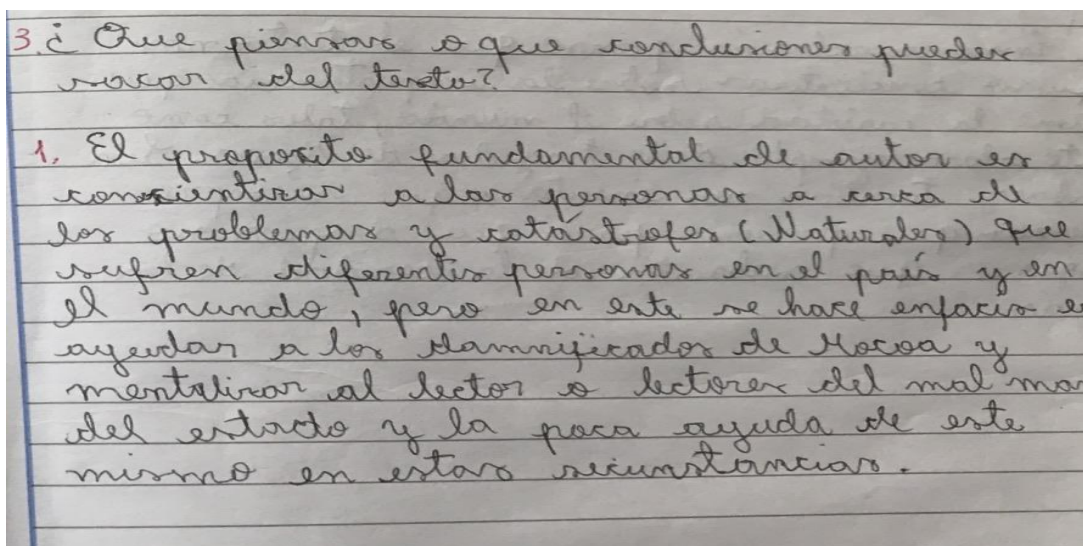 3. ¿ Que piensas o que conclusiones puedes
sacar del texto?
1. El proposito fundamental de autor es
consientizar a las personas a cerca de
los problemas y catástrofes (Naturales) que
sufren diferentes personas en el país y en
el mundo, pero en este se hace enfacis e
ayudar a los damnificados de Mocoa y
mentalizar al lector o lectores del mal ma
del estado y la poca ayuda de este
mismo en estas sicunstancias.